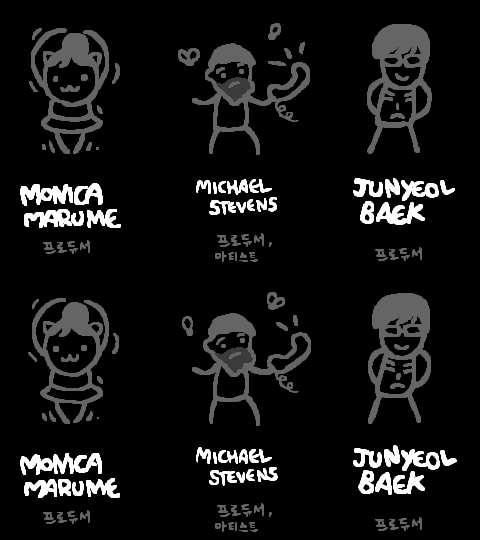 MONICA
MARUME
프로듀서
MICHAEL
STEVENS
프로듀서,
마티스트
JUNYEOL
BAEK
프로듀서
MONICA
MARUME
프로듀서
MICHAEL
STEVENS
프로듀서,
마티스트
JUNYEOL
BAEK
프로듀서